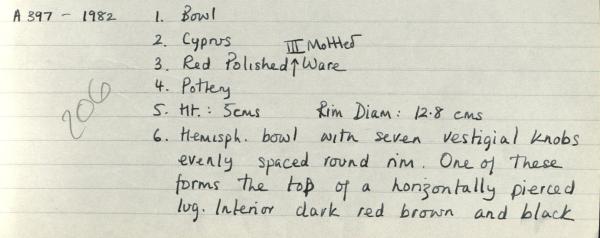 A 397 - 1982 1. Bowl
2. Cyprus III Mottled
3. Red Polished ↑ Ware
206
4. Pottery
5. Ht.: 5cms Rim Diam: 12.8 cms
6. Hemisph. bowl with seven vestigial knobs
evenly spaced round rim. One of these
forms the top of a horizontally pierced
lug. Interior dark red brown and black